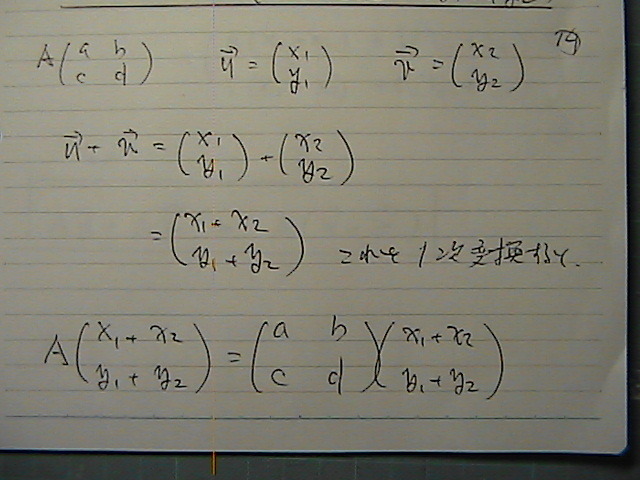 A(a b c d) u⃗ = (x₁ y₁) v⃗ = (x₂ y₂)
u⃗ + v⃗ = (x₁ y₁) + (x₂ y₂)
= (x₁ + x₂ y₁ + y₂) これを1次変換すると
A(x₁ + x₂ y₁ + y₂) = (a b c d)(x₁ + x₂ y₁ + y₂)